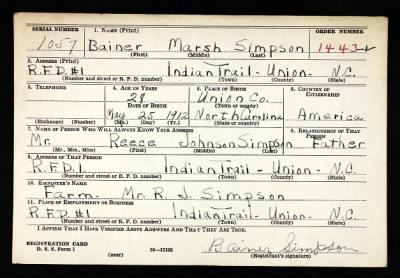 SERIAL NUMBER 1. NAME (Print) ORDER NUMBER
1057 Bainer Marsh Simpson 1443
(First) (Middle) (Last)
2. ADDRESS (Print)
R.F.D. #1 Indian Trail - Union - N.C.
(Number and street or R. F. D. number) (Town) (County) (State)
3. TELEPHONE 4. AGE IN YEARS 5. PLACE OF BIRTH 6. COUNTRY OF CITIZENSHIP
28 Union Co.
DATE OF BIRTH (Town or county)
May 25 1912 North Carolina America
(Exchange) (Number) (Mo.) (Day) (Yr.) (State or country)
7. NAME OF PERSON WHO WILL ALWAYS KNOW YOUR ADDRESS 8. RELATIONSHIP OF THAT PERSON
Mr. Reece Johnson Simpson Father
(Mr., Mrs., Miss) (First) (Middle) (Last)
9. ADDRESS OF THAT PERSON
R.F.D. 1. Indian Trail - Union - N.C.
(Number and street or R. F. D. number) (Town) (County) (State)
10. EMPLOYER'S NAME
Farm - Mr. R. J. Simpson
11. PLACE OF EMPLOYMENT OR BUSINESS
R.F.D. #1 Indian Trail - Union - N.C.
(Number and street or R. F. D. number) (Town) (County) (State)
I AFFIRM THAT I HAVE VERIFIED ABOVE ANSWERS AND THAT THEY ARE TRUE.
REGISTRATION CARD
D. S. S. Form 1 16-17105 Bainer Simpson
(over) (Registrant's signature)